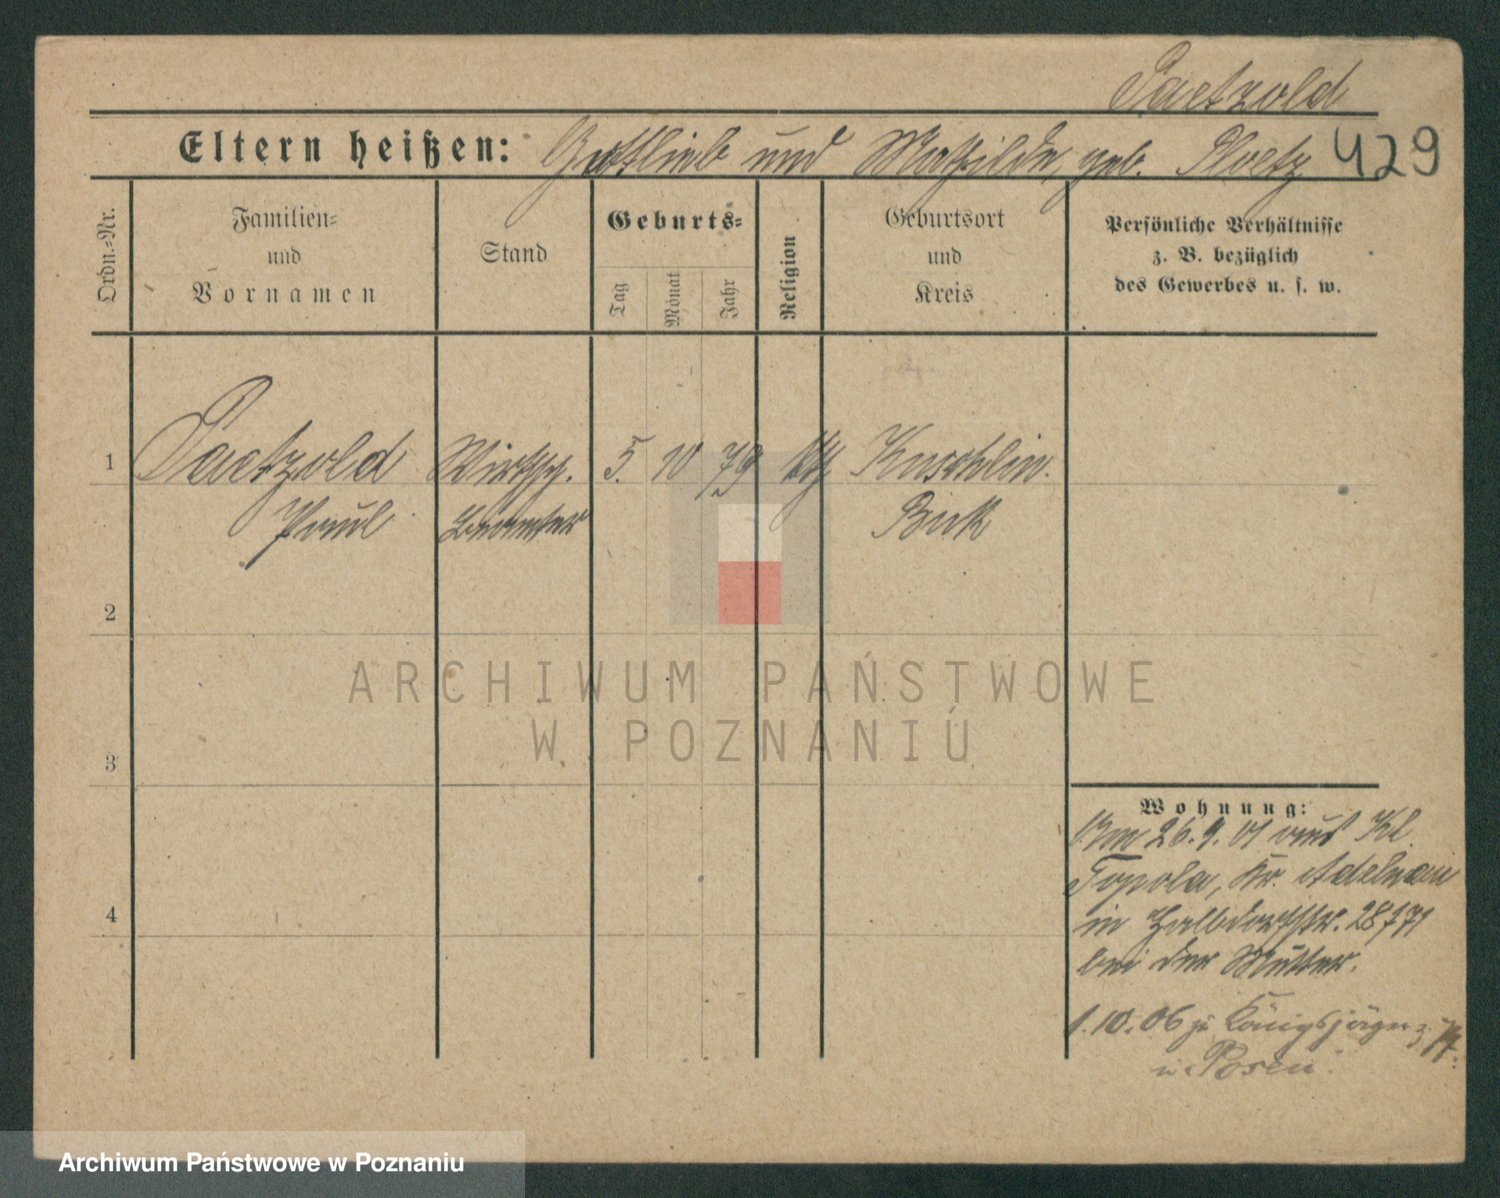 Paetzold
Eltern heißen: Gottlieb und Mathilde, geb. Ploetz 429
Ordn.-Nr.
Familien- und Vornamen
Stand
Geburts-
Tag
Monat
Jahr
Religion
Geburtsort und Kreis
Persönliche Verhältnisse
z. B. bezüglich
des Gewerbes u. s. w.
1 Paetzold Wirtsch. 5. 10 79 kth Kuschlin.
Paul Beamter Buk
2
3
4
ARCHIWUM PAŃSTWOWE
W POZNANIU
Wohnung:
Am 26.9.01 aus Kl.
Topola, Kr. Adelnau
in Halbdorfstr. 28
bei der Mutter.
1.10.06 zu Königsjäger z. Pf.
in Posen.
Archiwum Państwowe w Poznaniu